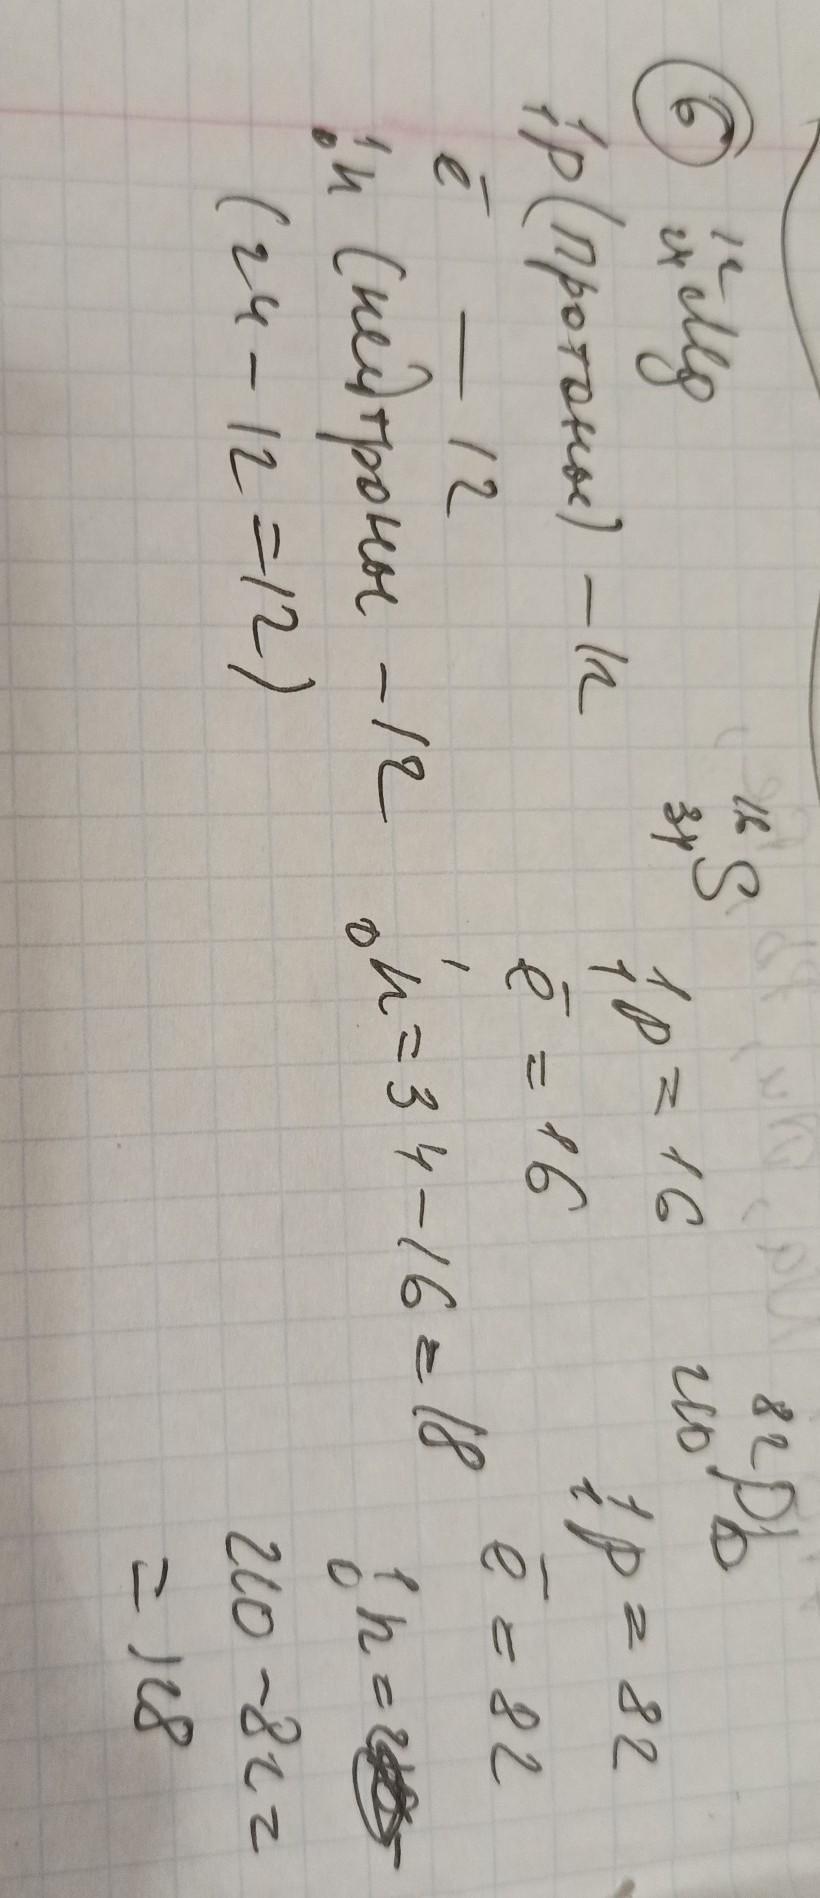 6
12
24 Mg
1
1 p (протоны) - 12
ē - 12
1
0 n (нейтроны - 12
(24 - 12 = 12)
16
34 S
1
1 p = 16
ē = 16
1
0 n = 34 - 16 = 18
82
210 Pb
1
1 p = 82
ē = 82
1
0 n =
210 - 82 =
= 128